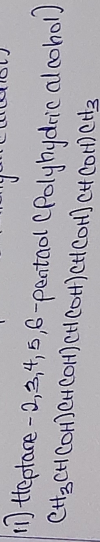 11) Heptane-2,3,4,5,6-pentaol (Polyhydric alcohol)
CH3CH(OH)CH(OH)CH(OH)CH(OH)CH(OH)CH3